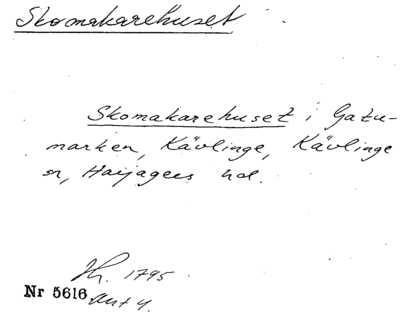 Skomakarehuset
Skomakarehuset i Gatu-
marken, Kävlinge, Kävlinge
sn, Harjagers hd.
Jb. 1795
Nr 5616 Ant 4.